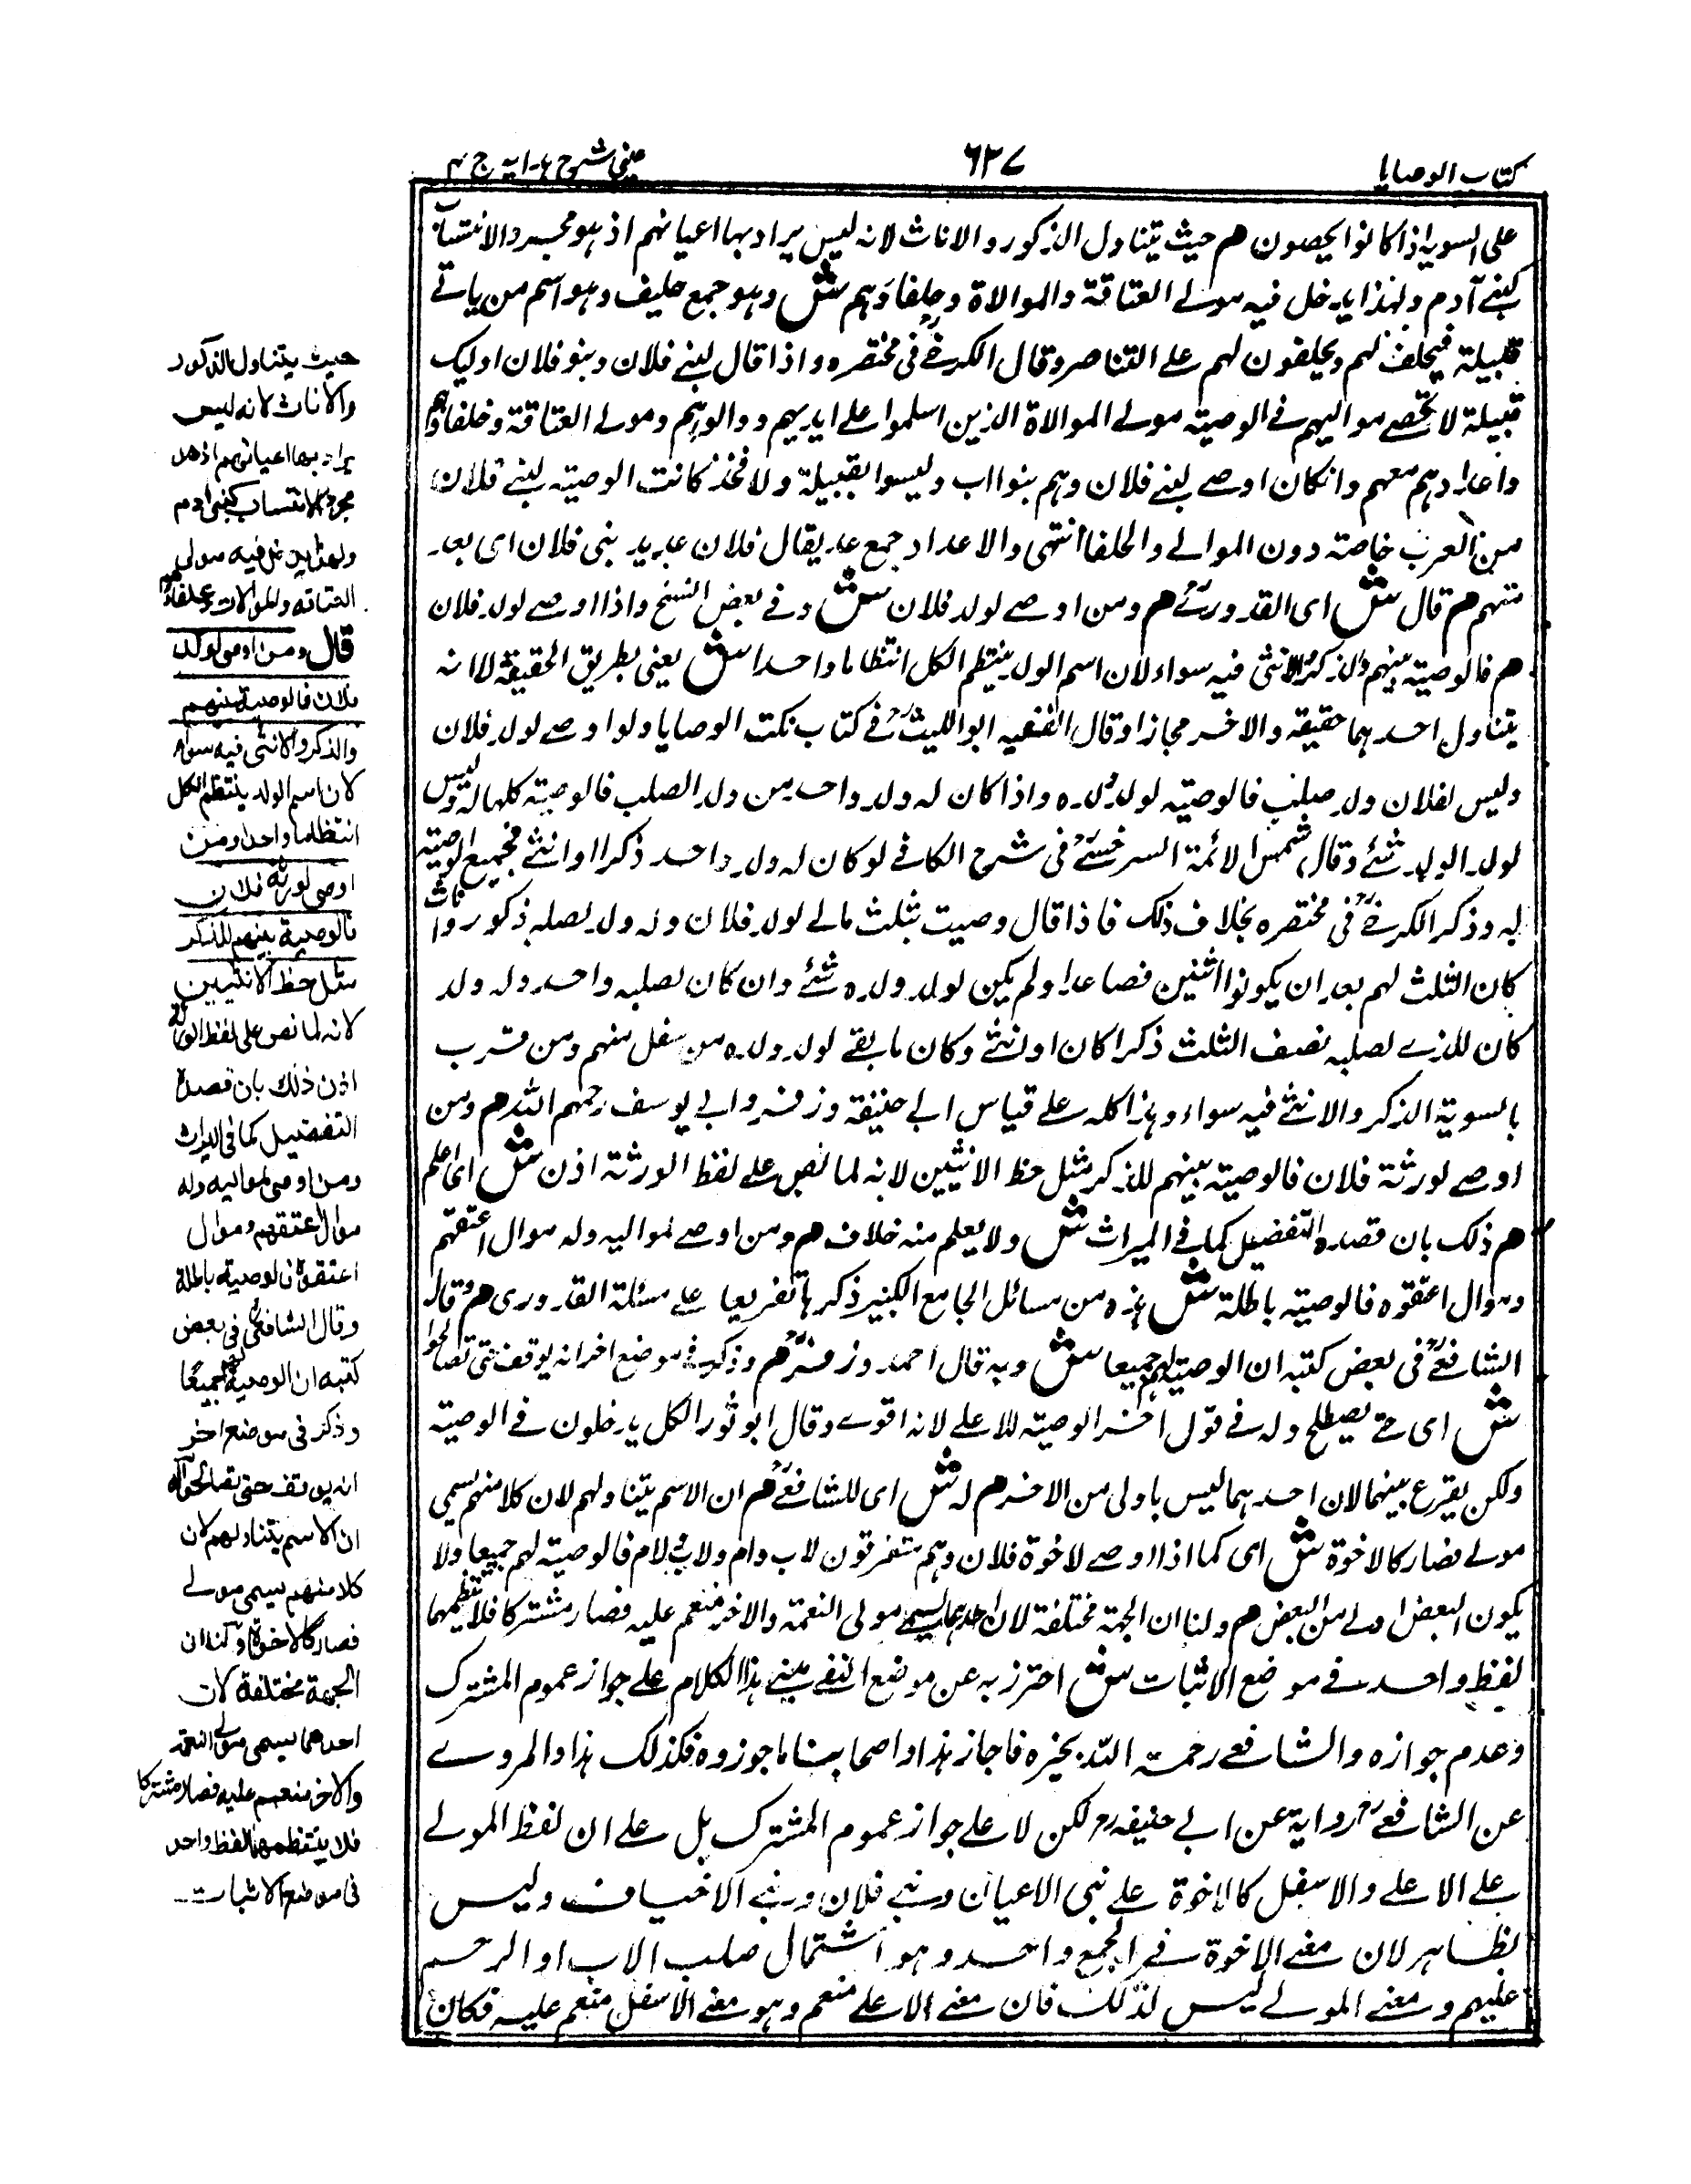 كتاب الوصايا
٦٢٧
عینی شرح ہدایہ ج ۴
على السوية اذا كانوا يحصون هم حيث يتناول الذكور والاناث لانه ليس يراد بها اعيانهم اذ هو مجرد الانتساب
كبنے آدم ولهذا يدخل فيه مولے العتاقة والموالاة وحلفاؤهم ش وهو جمع حليف وهو اسم من ياتے
قبيلة فيحلف لهم ويحلفون لهم علے التناصر وقال الكرخےؒ فی مختصره واذا قال لبنے فلان وبنو فلان اوليك
قبيلة لا تحصے مواليهم فے الوصية مولے الموالاة الذين اسلموا علے ايديهم ووالوهم ومولے العتاقة وحلفاؤهم
واعدادهم معهم وانكان اوصے لبنے فلان وهم بنو اب وليسوا بقبيلة ولا فخذ كانت الوصية لبنے فلان
من العرب خاصة دون الموالے والحلفا انتهى والاعداد جمع عديد يقال فلان عديد بنی فلان ای يعد
منهم هم قال ش ای القدوریؒ هم ومن اوصے لولد فلان ش وفے بعض النسخ واذا اوصے لولد فلان
هم فالوصية بينهم والذكر والانثى فيه سواء لان اسم الولد ينتظم الكل انتظاما واحدا ش يعنی بطريق الحقيقة لا انه
يتناول احدهما حقيقة والاخر مجازا وقال الفقيه ابو الليثؒ فے كتاب نكت الوصايا ولو اوصے لولد فلان
وليس لفلان ولد صلب فالوصية لولد ولده واذا كان له ولد واحد من ولد الصلب فالوصية كلها له وليس
لولد الولد شئے وقال شمس الائمة السرخسےؒ فی شرح الكافے لو كان له ولد واحد ذكرا او انثے فجميع الوصية
له وذكر الكرخےؒ فی مختصره بخلاف ذلك فاذا قال وصيت بثلث مالے لولد فلان وله ولد لصلبه ذكور واناث
كان الثلث لهم بعد ان يكونوا اثنين فصاعدا ولم يكن لولد ولده شئے وان كان لصلبه واحد وله ولد ولد
كان للذے لصلبه نصف الثلث ذكرا كان او انثے وكان ما بقے لولد ولده من سفل منهم ومن قرب
بالسوية الذكر والانثے فيه سواء وهذا كله علے قياس ابے حنيفة وزفر وابے يوسف رحمهم الله هم ومن
اوصے لورثة فلان فالوصية بينهم للذكر مثل حظ الانثيين لانه لما نص علے لفظ الورثة اذن ش ای اعلم
هم ذلك بان قصده التفضيل كما فے الميراث ش ولا يعلم منه خلاف هم ومن اوصے لمواليه وله موال اعتقهم
وموال اعتقوه فالوصية باطلة ش هذه من مسائل الجامع الكبير ذكرها تفريعا علے مسئلة القدوری هم وقال
الشافعےؒ فی بعض كتبه ان الوصية لهم جميعا ش وبه قال احمد وزفرؒ هم وذكر فے موضع اخر انه يوقف حتى تصالحوا
ش ای حتے يصطلح وله فے قول اخر الوصية للاعلے لانه اقوے وقال ابو ثور الكل يدخلون فے الوصية
ولكن يقرع بينهما لان احدهما ليس باولى من الاخر هم له ش ای للشافعےؒ هم ان الاسم يتناولهم لان كلا منهم يسمى
مولے فصار كالاخوة ش ای كما اذا اوصے لاخوة فلان وهم متفرقون لاب وام ولاب ولام فالوصية لهم جميعا ولا
يكون البعض اولے من البعض هم ولنا ان الجهة مختلفة لان احدهما يسمے مولى النعمة والاخر منعم عليه فصار مشتركا فلا ينتظمهما
لفظ واحد فے موضع الاثبات ش احترز به عن موضع النفے يبنے هذا الكلام علے جواز عموم المشترك
وعدم جوازه والشافعے رحمة الله يجيزه فاجاز هذا واصحابنا ما جوزوه فكذلك هذا والمروے
عن الشافعےؒ رواية عن ابے حنيفةؒ لكن لا علے جواز عموم المشترك بل علے ان لفظ المولے
علے الاعلے والاسفل كالاخوة علے بنی الاعيان وبنے فلان وبنے الاخياف وليس
بظاهر لان معنے الاخوة فے الجمع واحد وهو اشتمال صلب الاب او الرحم
عليهم ومعنے المولے ليس لذلك فان معنے الاعلے منعم وهو معنے الاسفل منعم عليه فكان
حيث يتناول الذكور
والاناث لانه ليس
يراد بها اعيانهم اذ هو
مجرد الانتساب كبنی ادم
ولهذا يدخل فيه مولى
العتاقه والموالات وحلفاؤهم
قال ومن اوصى لولد
فلان فالوصية بينهم
والذكر والانثى فيه سواء
لان اسم الولد ينتظم الكل
انتظاما واحدا ومن
اوصى لورثة فلان
فالوصية بينهم للذكر
مثل حظ الانثيين
لانه لما نص على لفظ الورثة
اذن ذلك بان قصده
التفضيل كما فی الميراث
ومن اوصى لمواليه وله
موال اعتقهم وموال
اعتقوه فالوصية باطلة
وقال الشافعیؒ فی بعض
كتبه ان الوصية لهم جميعا
وذكر فی موضع اخر
انه يوقف حتى يتصالحوا له
ان الاسم يتناولهم لان
كلا منهم يسمى مولے
فصار كالاخوة ولنا ان
الجهة مختلفة لان
احدهما يسمى مولى النعمة
والاخر منعم عليه فصار مشتركا
فلا ينتظمهما لفظ واحد
فی موضع الاثبات